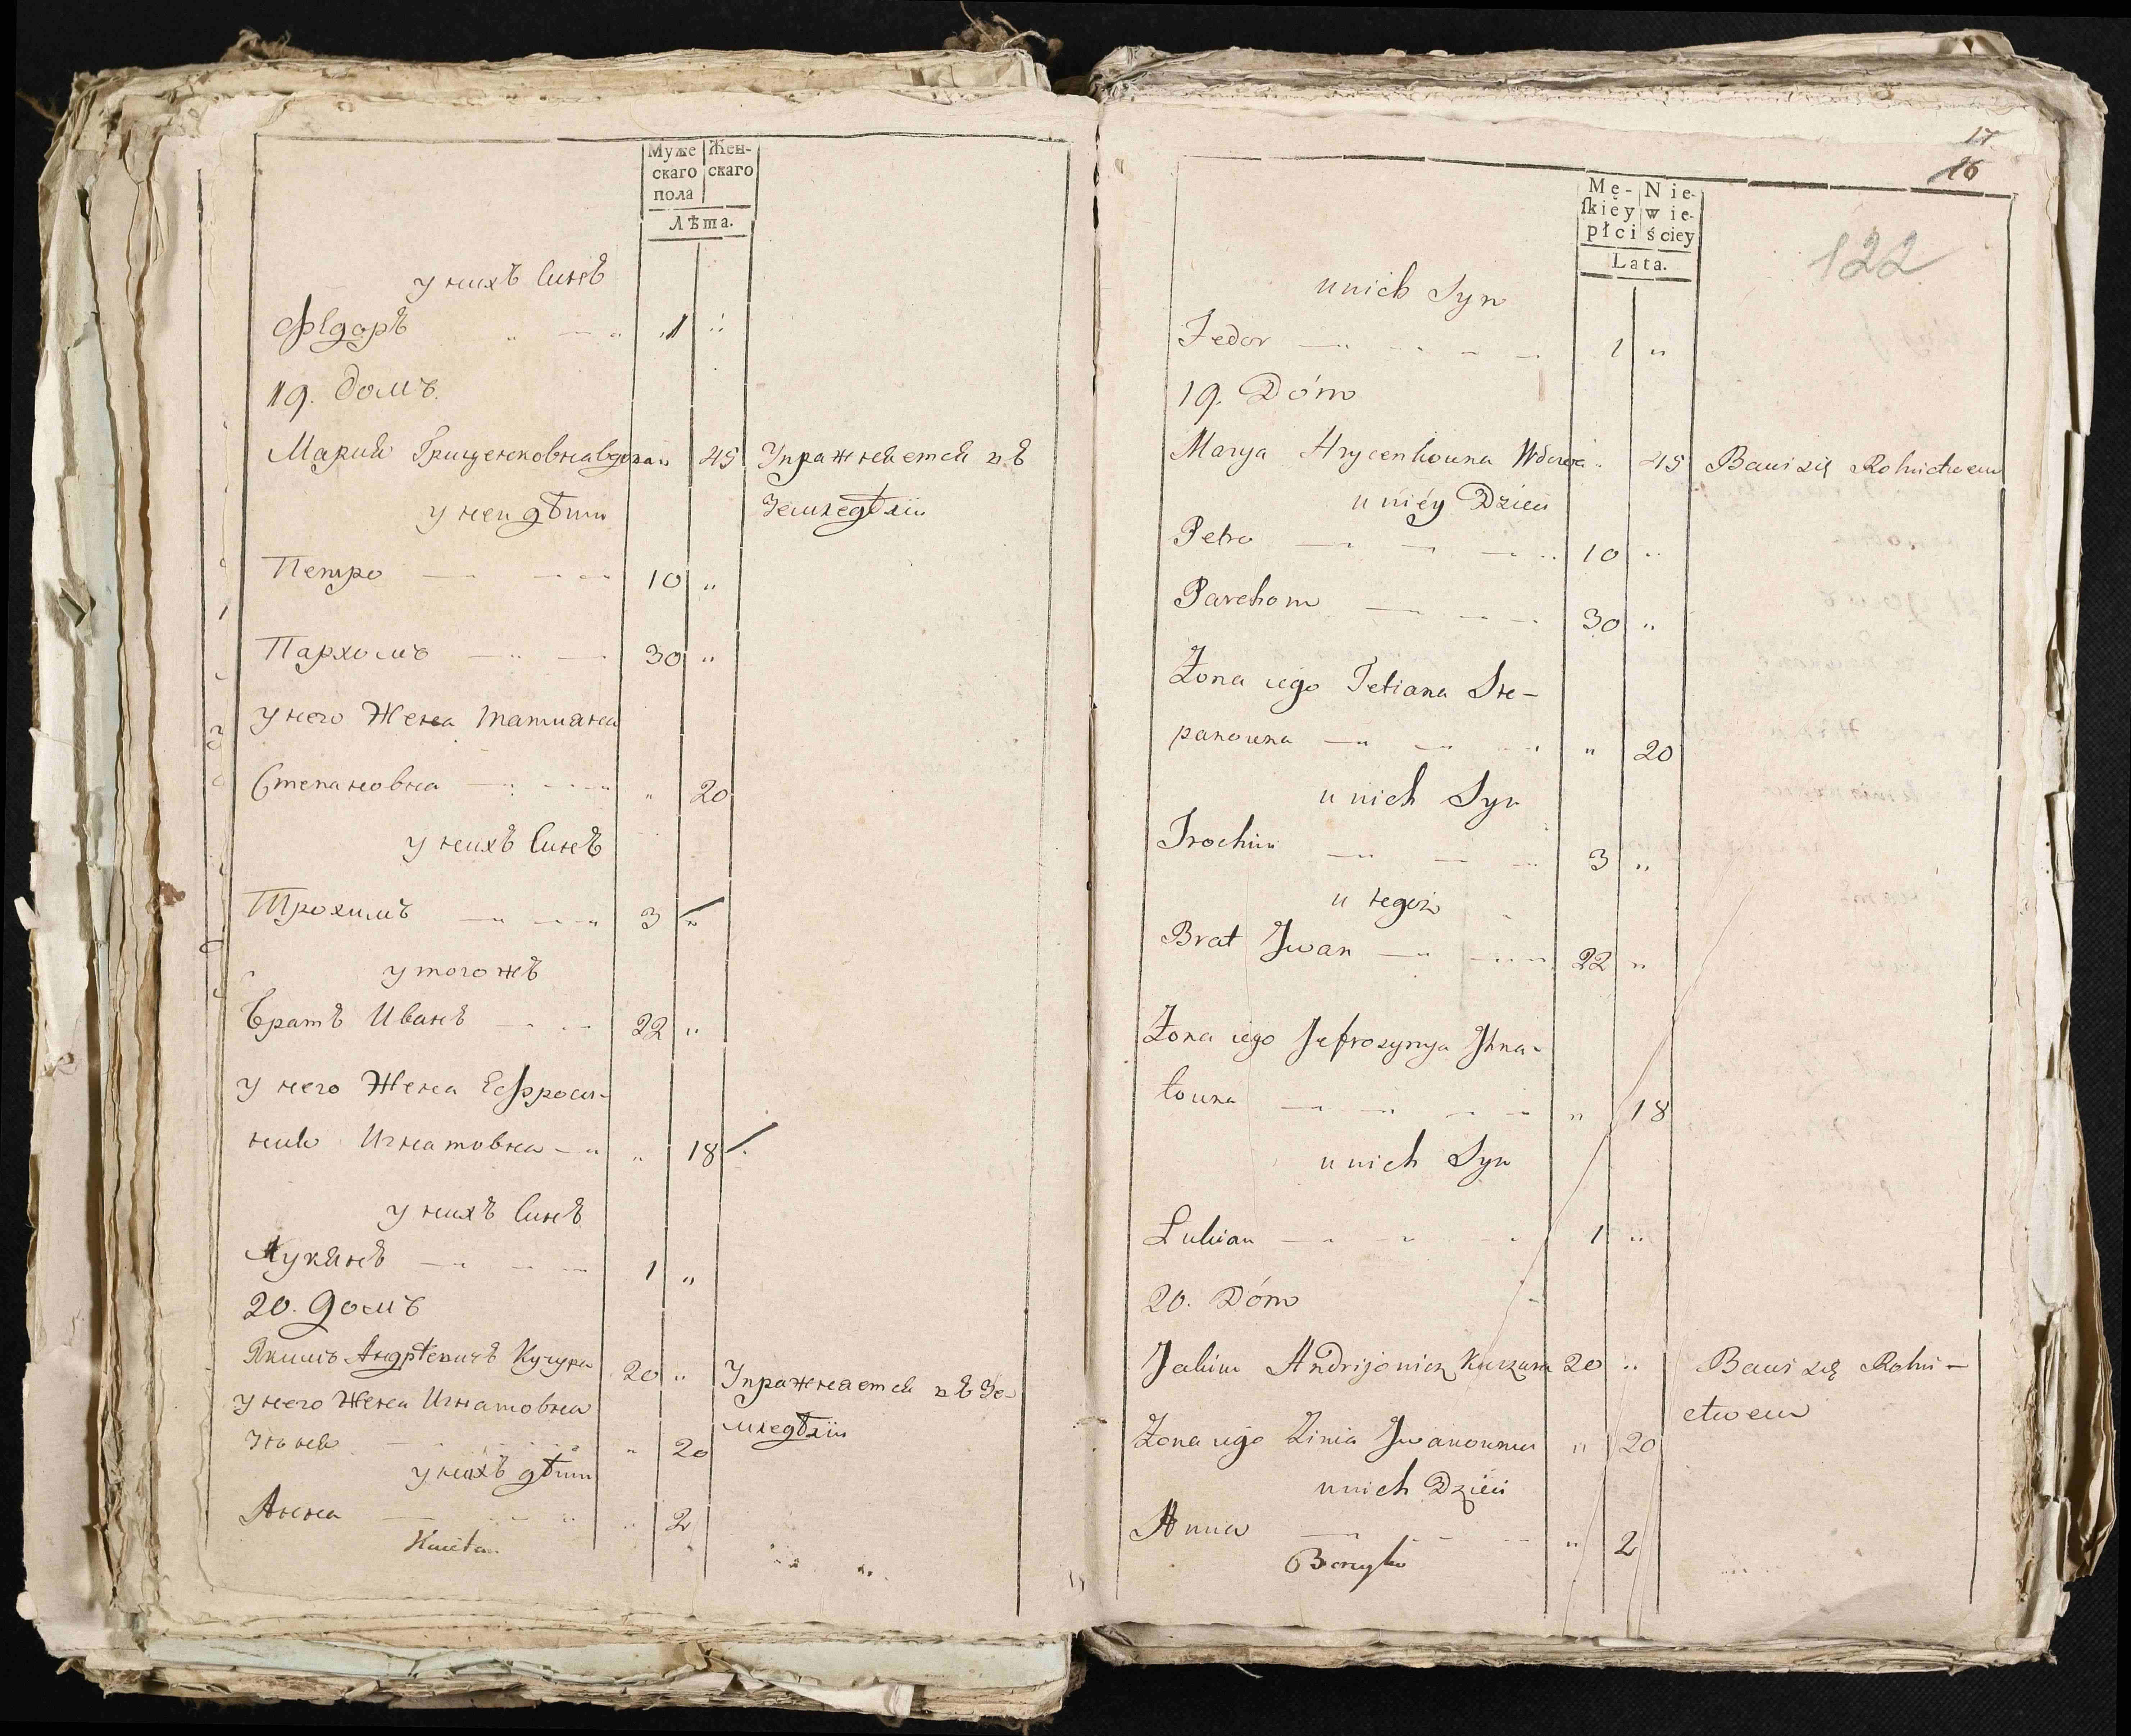 Муже
скаго
пола
Жен-
скаго
Лѣта.
у нихъ Синъ
Ѳедоръ 1 "
19. домъ.
Мария Гриценковна вдова " 45 Упражняется въ
у неи дѣти Земледѣлiи
Петро 10 "
Пархомъ 30 "
у него Жена татиана
Степановна " 20
у нихъ Синъ
Трохимъ 3 "
у того жъ
братъ Иванъ 22 "
у него Жена Ефроси-
ния Игнатовна " 18
у нихъ Синъ
Лукянъ 1 "
20. домъ
Якимъ Андрѣевичъ Кучура 20 " Упражняется въ Зе-
у него Жена Игнатовна мледѣлiи
" 20
у нихъ дѣти
Анна " 2
17
16
Mę-
ſkiey
płci
Nie-
wie-
ściey
Lata.
122
u nich Syn
Fedor 1 "
19. Dóm
Marya Hrycenkowna Wdowa " 45 Bawi się Rolnictwem
u niéy Dzieci
Petro 10 "
Parchom 30 "
Żona iego Tetiana Ste-
panowna " 20
u nich Syn
Trochim 3 "
u tegoż
Brat Jwan 22 "
Żona iego Jefrozynya Jhna-
towna " 18
u nich Syn
Lukian 1 "
20. Dóm
Jakim Andrijowicz Kuczura 20 " Bawi się Rolni-
ctwem
Żona iego Zinia Jwanowna " 20
u nich Dzieci
Anna " 2